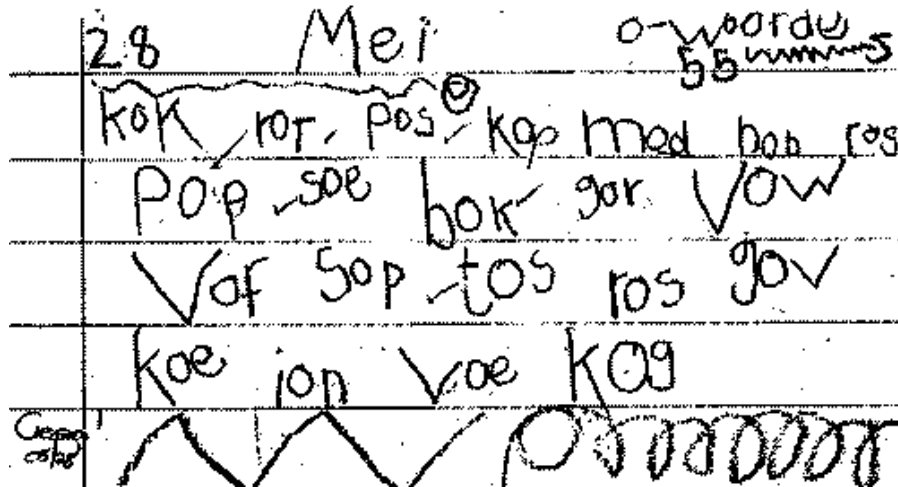 28 Mei o-woordu
55
kok ror pos kop med bob ros
pop soe bok gor vow
vaf sop tos ros gov
koe jon voe kog